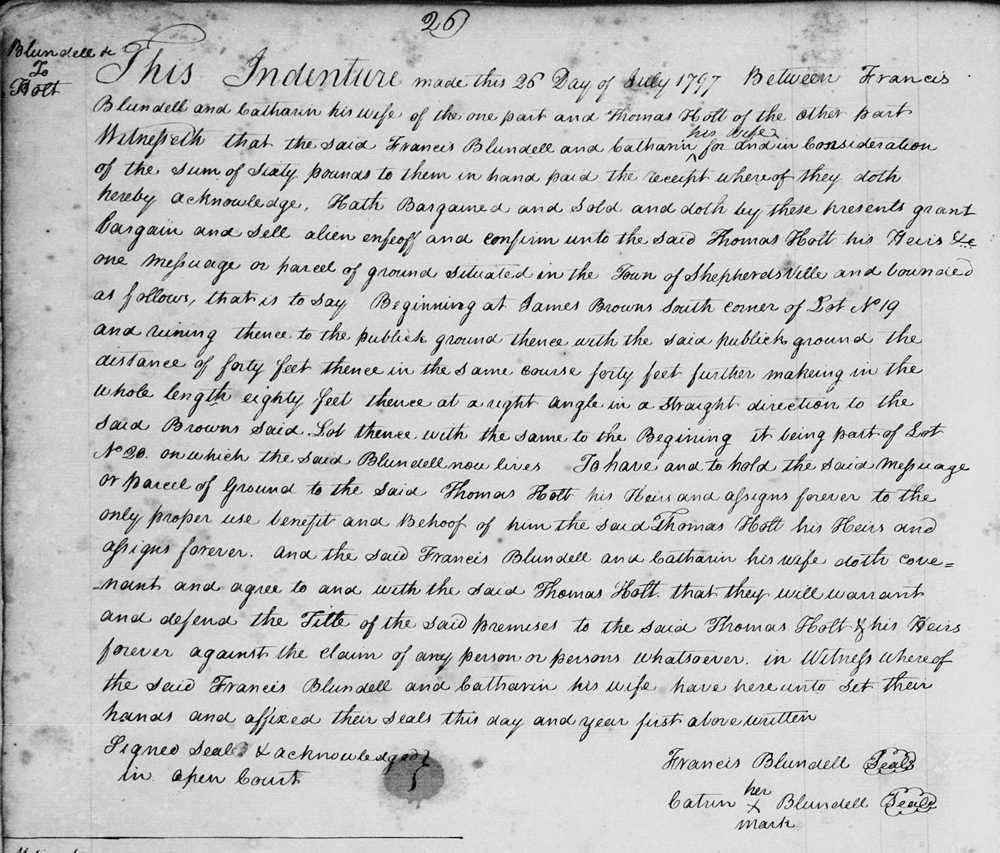 26
Blundell &c
To
Holt
This Indenture made this 26 Day of July 1797 Between Francis
Blundell and Catharin his wife of the one part and Thomas Holt of the other part
Witnesseth that the said Francis Blundell and Catharin his wife for and in Consideration
of the sum of Sixty pounds to them in hand paid the receipt whereof they doth
hereby acknowledge, Hath Bargained and Sold and doth by these presents grant
bargain and sell alien enfeoff and confirm unto the said Thomas Holt his Heirs &c
one Messuage or parcel of ground situated in the Town of Shepherdsville and bounded
as follows, that is to say Beginning at James Browns South corner of Lot No 19
and runing thence to the publick ground thence with the said publick ground the
distance of forty feet thence in the same course forty feet further makeing in the
whole length eighty feet thence at a right angle in a Straight direction to the
said Browns said Lot thence with the same to the Begining it being part of Lot
No 20. on which the said Blundell now lives To have and to hold the said Messuage
or parcel of Ground to the said Thomas Holt his Heirs and assigns forever to the
only proper use benefit and Behoof of him the said Thomas Holt his Heirs and
assigns forever. and the said Francis Blundell and Catharin his wife doth cove=
=nant and agree to and with the said Thomas Holt. that they will warrant
and defend the Title of the said premises to the said Thomas Holt & his Heirs
forever against the claim of any person or persons whatsoever. in Witness whereof
the said Francis Blundell and Catharin his wife have here unto Set their
hands and affixed their Seals this day and year first above written
Signed Sealed & acknowledged
in open Court
Francis Blundell Seal
her
Catrin x Blundell Seal
mark